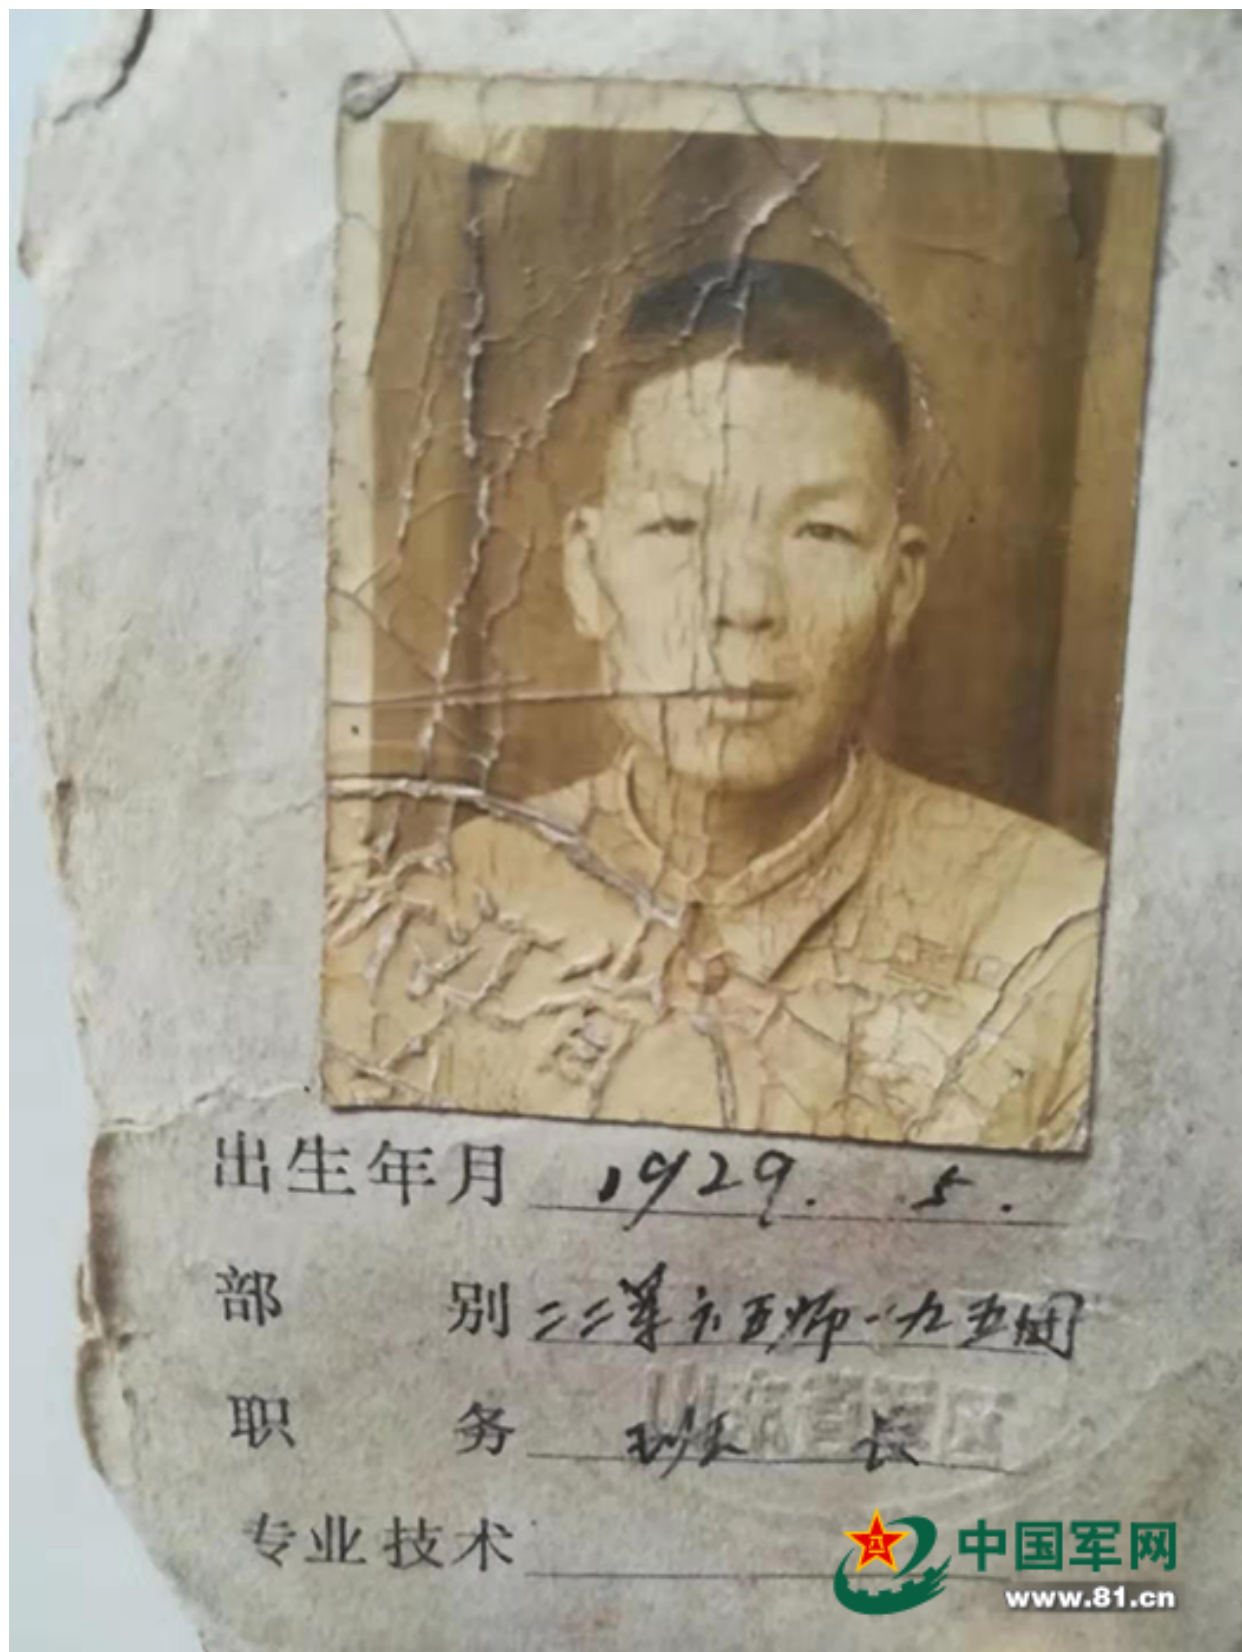 出生年月 1929. 5.
部别 二二军六五师一九五团
职务 班长
专业技术
中国军网
www.81.cn